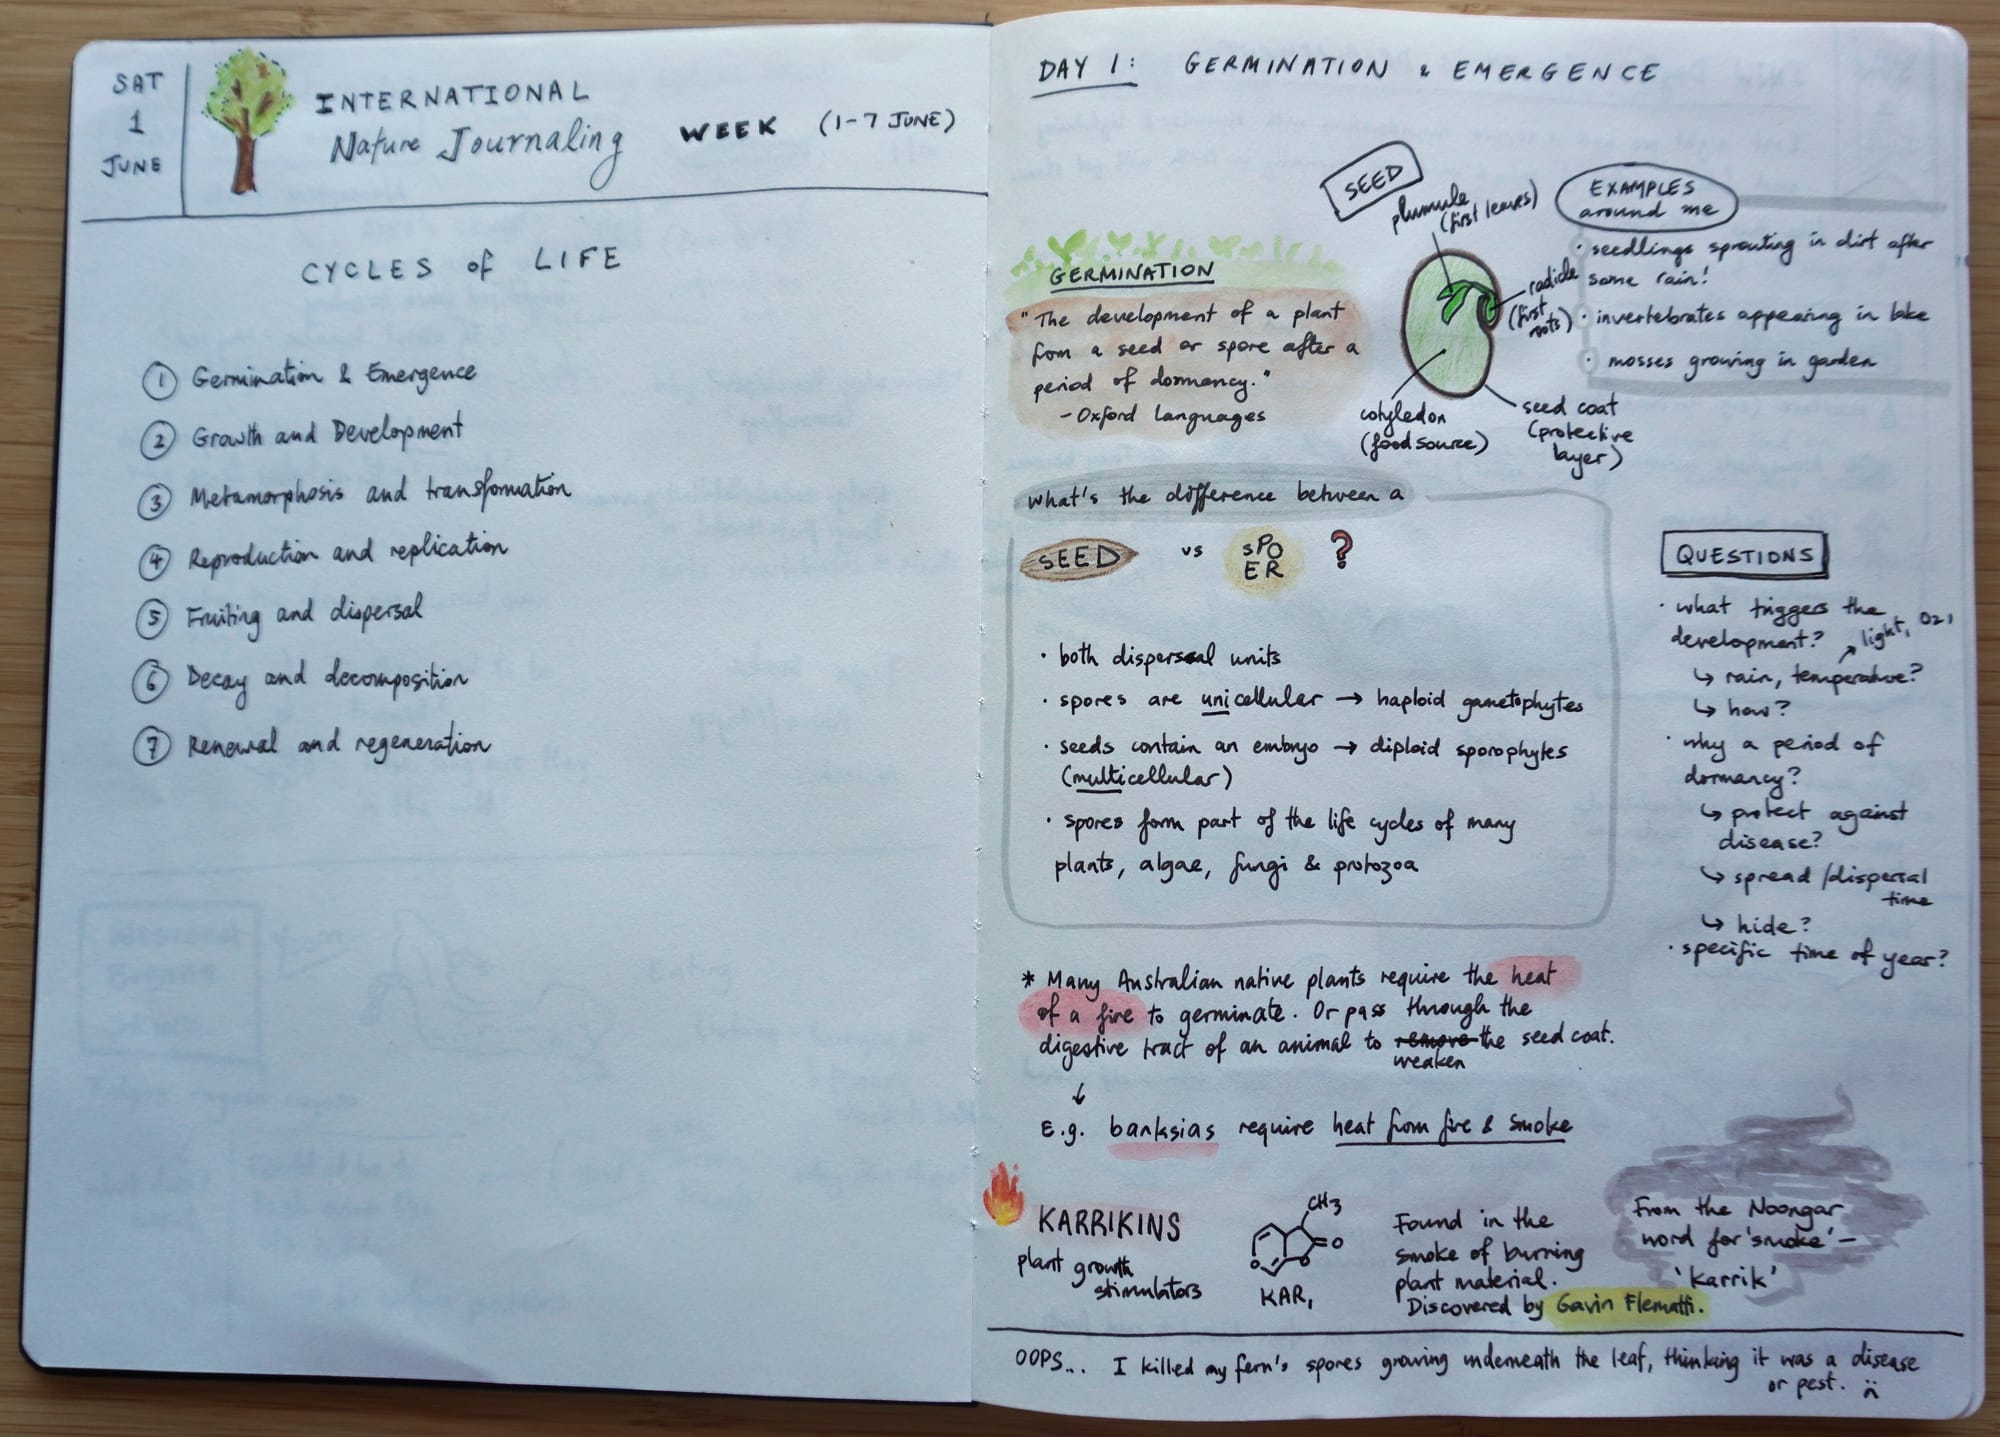 SAT
1
JUNE
INTERNATIONAL
Nature Journaling
WEEK (1-7 JUNE)
CYCLES of LIFE
1 Germination & Emergence
2 Growth and Development
3 Metamorphosis and transformation
4 Reproduction and replication
5 Fruiting and dispersal
6 Decay and decomposition
7 Renewal and regeneration
DAY 1: GERMINATION & EMERGENCE
GERMINATION
"The development of a plant
from a seed or spore after a
period of dormancy."
- Oxford languages
SEED
plumule
(first leaves)
radicle
(first
roots)
cotyledon
(food source)
seed coat
(protective
layer)
EXAMPLES
around me
· seedlings sprouting in dirt after
some rain!
· invertebrates appearing in lake
· mosses growing in garden
what's the difference between a
SEED vs SPO
ER ?
· both dispersal units
· spores are unicellular → haploid gametophytes
· seeds contain an embryo → diploid sporophytes
(multicellular)
· spores form part of the life cycles of many
plants, algae, fungi & protozoa
QUESTIONS
· what triggers the
development?
light, O2,
↳ rain, temperature?
↳ how?
· why a period of
dormancy?
↳ protect against
disease?
↳ spread/dispersal
time
↳ hide?
· specific time of year?
* Many Australian native plants require the heat
of a fire to germinate. Or pass through the
digestive tract of an animal to remove the seed coat.
weaken
↓
E.g. banksias require heat from fire & smoke
KARRIKINS
plant growth
stimulators
CH3
O
O
O
KAR1
Found in the
smoke of burning
plant material.
Discovered by Gavin Flematti.
From the Noongar
word for 'smoke' -
'karrik'
OOPS... I killed my fern's spores growing underneath the leaf, thinking it was a disease
or pest. :(